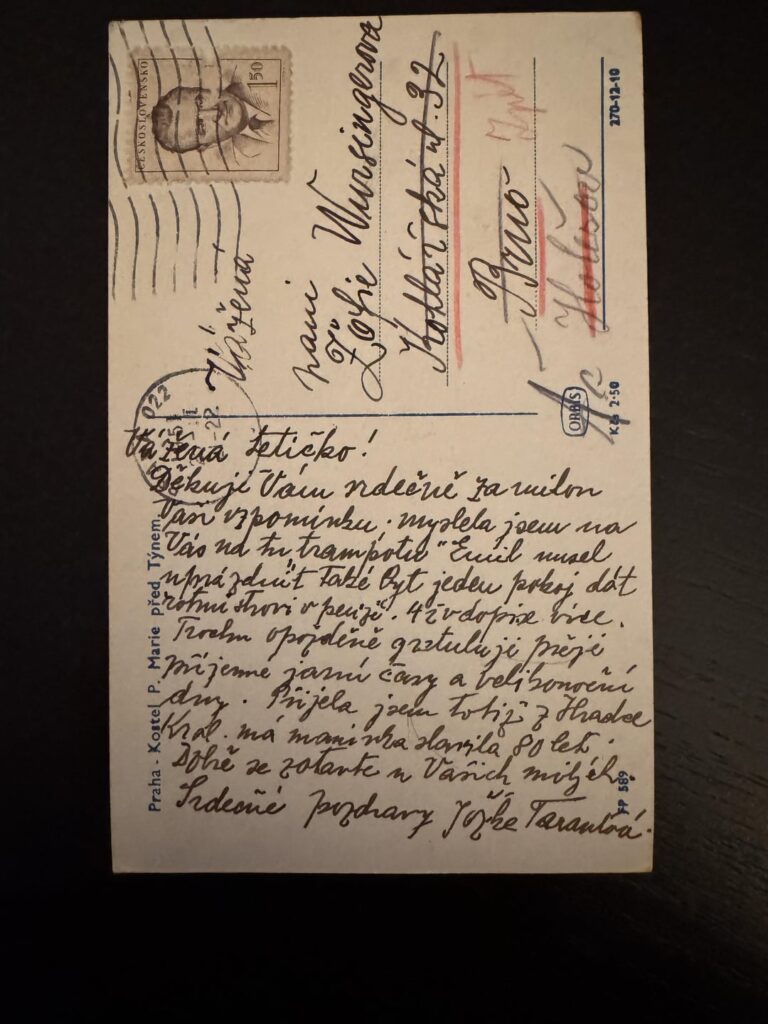 ČESKOSLOVENSKO
1.50
022
Vážená
paní
Žofie Wursingerova
Kotlářská ul. 32
Brno Zpět
Holešov
270-12-10
ORBIS
Kčs 2·50
Praha - Kostel P. Marie před Týnem.
FP 589
Vážená tetičko!
Děkuji Vám srdečně za milou
Vaši vzpomínku. myslela jsem na
Vás na tu trampotu "Emil musel
uprázdnit také byt jeden pokoj dát
rotmistrovi v penzi. více.
Trochu opožděně gratuluji přeji
příjemné jarní časy a velikonoční
dny. Přijela jsem totiž z Hradce
Král. má maminka slavila 80 let.
Dobře se u Vašich milých.
Srdečné pozdravy